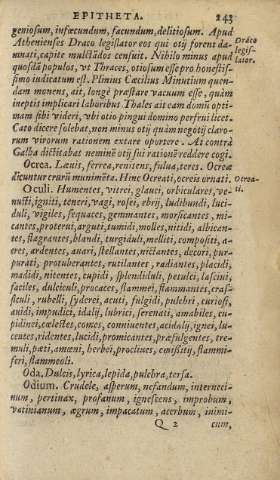 EPITHETA. 243
geniosum, infœcundum, facundum, delitiosum. Apud
Athenienses Draco legislator eos qui otij forent da-
mnati, capite mulctādos censuit. Nihilo minus apud
quosdā populos, vt Thraces, otiosum esse pro honestis-
simo iudicatum est. Plinius Cæcilius Minutium quen-
dam monens, ait, longè præstare vacuum esse, quàm
ineptis implicari laboribus Thales ait eam domū opti-
mam sibi videri, vbi otio pingui domino perfrui licet.
Cato dicere solebat, non minus otij quàm negotij claro-
rum virorum rationem extare oportere. At contrà
Galba dictitabat neminē otij sui rationē reddere cogi.
Draco
legis-
lator.
Ocrea. Leuis, ferrea, renitens, fulua, teres. Ocreæ
dicuntur crurū munimēta. Hinc Ocreati, ocreis ornati.
Ocrea-
ti.
Oculi. Humentes, vitrei, glauci, orbiculares, ve-
nusti, igniti, teneri, vagi, rosei, ebrij, ludibundi, luci-
duli, vigiles, sequaces, gemmantes, morsicantes, mi-
cantes, proterui, arguti, tumidi, molles, nitidi, albican-
tes, flagrantes, blandi, turgiduli, melliti, compositi, a-
cres, ardentes, auari, stellantes, nictantes, decori, pur-
purati, protuberantes, rutilantes, radiantes, placidi,
madidi, nitentes, cupidi, splendiduli, petulci, lasciui,
faciles, dulciculi, procaces, flammei, flammantes, cras-
siculi, rubelli, syderei, acuti, fulgidi, pulchri, curiosi,
auidi, impudici, idalij, lubrici, serenati, amabiles, cu-
pidinei, cœlestes, comes, conniuentes, aciduli, ignei, lu-
centes, ridentes, lucidi, promicantes, præfulgentes, tre-
muli, pæti, amœni, herbei, procliues, emissitij, flammi-
feri, flammeoli.
Oda. Dulcis, lyrica, lepida, pulchra, tersa.
Odium. Crudele, asperum, nefandum, interneci-
num, peruicax, profanum, ignescens, improbum,
vatinianum, ægrum, impacatum, acerbum, inimi-
Q 2 cum,